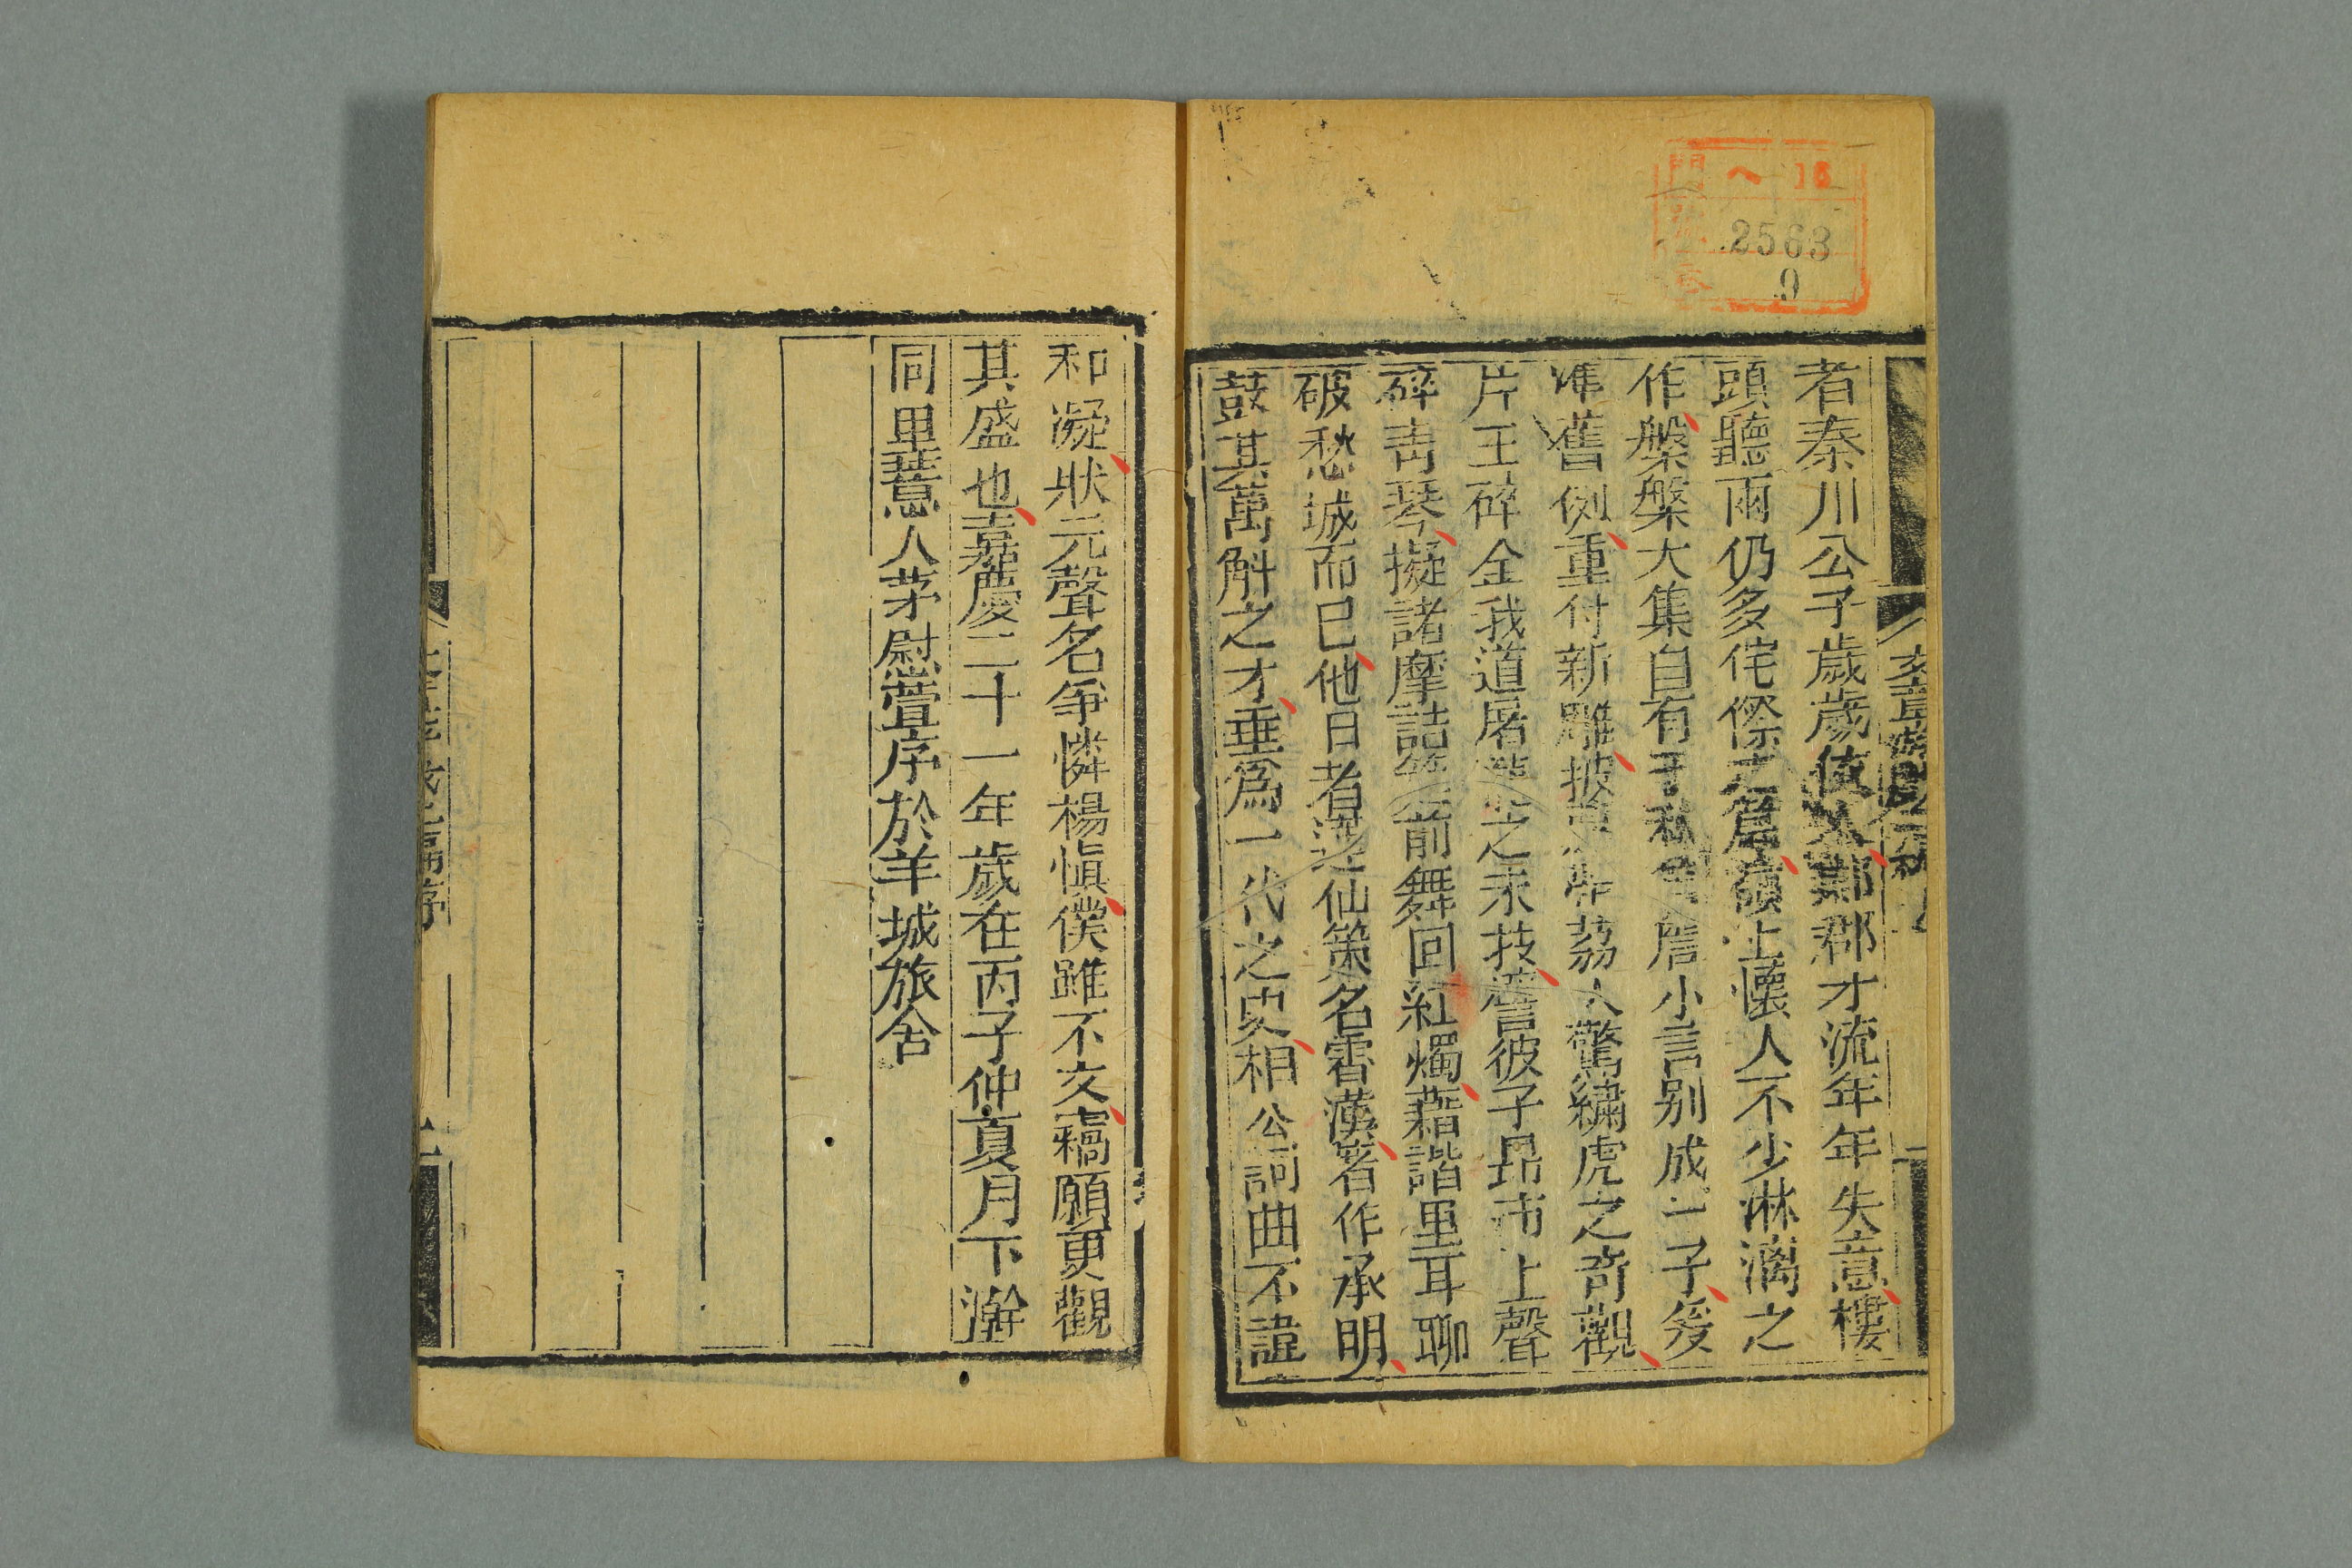 門 へ 16
2563
9
者秦川公子歲歲依人鄴郡才流年年失意樓
頭聽雨仍多侘傺之篇嶺上懷人不少淋漓之
作槃槃大集自有千秋詹詹小言别成一子爰
准舊例重付新雕披 荔人驚繡虎之竒觀
片玉碎金我道屠 之末技詹彼子昻市上聲
碎靑琴擬諸摩詰筵前舞回紅燭藉諧里耳聊
破愁城而已他日者選仙策名霄漢著作承明
鼓其萬斛之才垂爲一代之史相公詞曲不諱
和凝狀元聲名爭憐楊愼僕雖不文竊願更觀
其盛也嘉慶二十一年歲在丙子仲夏月下澣
同里薏人茅慰萱序於羊城旅舍